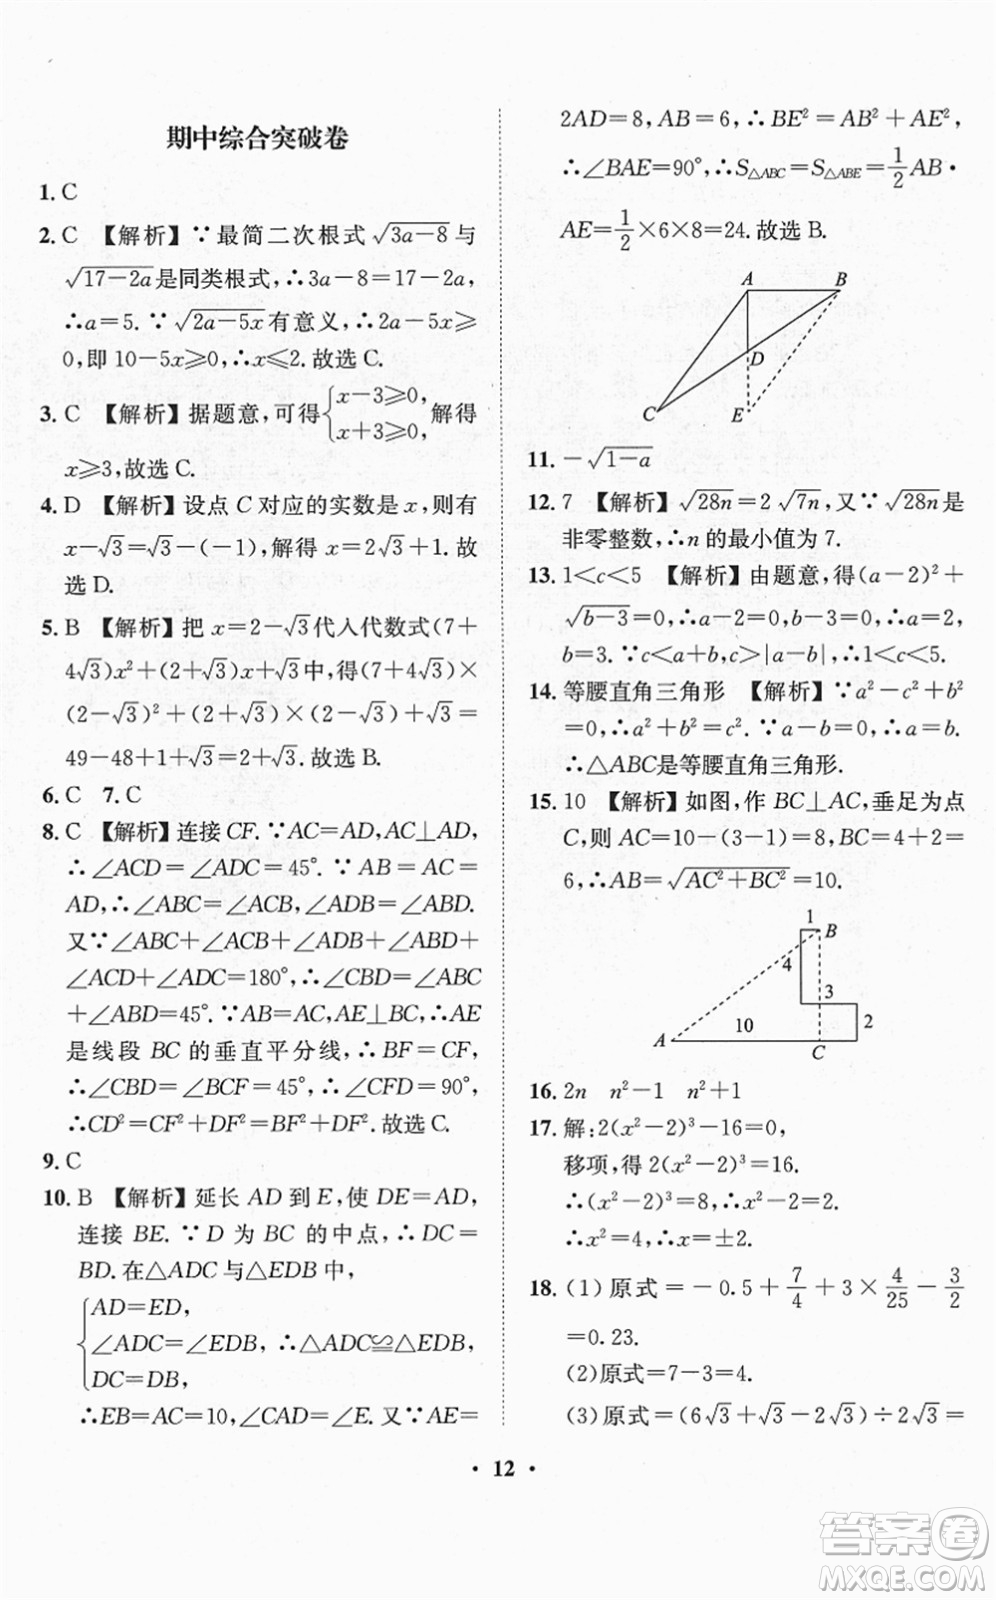 期中综合突破卷
1. C
2. C 【解析】∵最简二次根式√(3a−8)与
√(17−2a)是同类根式,∴3a−8=17−2a,
∴a=5.∵√(2a−5x)有意义,∴2a−5x≥
0,即 10−5x≥0,∴x≤2.故选 C.
3. C 【解析】据题意,可得{x−3≥0, x+3≥0,解得
x≥3,故选 C.
4. D 【解析】设点 C 对应的实数是 x,则有
x−√3=√3−(−1),解得 x=2√3+1.故
选 D.
5. B 【解析】把 x=2−√3代入代数式(7+
4√3)x²+(2+√3)x+√3中,得(7+4√3)×
(2−√3)²+(2+√3)×(2−√3)+√3=
49−48+1+√3=2+√3.故选 B.
6. C 7. C
8. C 【解析】连接 CF.∵AC=AD,AC⊥AD,
∴∠ACD=∠ADC=45°.∵AB=AC=
AD,∴∠ABC=∠ACB,∠ABD=∠ADB.
又∵∠ABC+∠ACB+∠ADB+∠ABD+
∠ACD+∠ADC=180°,∴∠CBD=∠ABC
+∠ABD=45°.∵AB=AC,AE⊥BC,∴AE
是线段 BC 的垂直平分线,∴BF=CF,
∴∠CBD=∠BCF=45°,∴∠CFD=90°,
∴CD²=CF²+DF²=BF²+DF².故选 C.
9. C
10. B 【解析】延长 AD 到 E,使 DE=AD,
连接 BE.∵D 为 BC 的中点,∴DC=
BD.在△ADC 与△EDB 中,
{AD=ED,
∠ADC=∠EDB, ∴△ADC≌△EDB,
DC=DB,
∴EB=AC=10,∠CAD=∠E.又∵AE=
2AD=8,AB=6,∴BE²=AB²+AE²,
∴∠BAE=90°,∴S△ABC=S△ABE=1/2 AB·
AE=1/2×6×8=24.故选 B.
A B
D
C E
11. −√(1−a)
12. 7 【解析】√(28n)=2√(7n),又∵√(28n)是
非零整数,∴n 的最小值为 7.
13. 1<c<5 【解析】由题意,得(a−2)²+
√(b−3)=0,∴a−2=0,b−3=0,∴a=2,
b=3.∵c<a+b,c>|a−b|,∴1<c<5.
14. 等腰直角三角形 【解析】∵a²−c²+b²
=0,∴a²+b²=c².∵a−b=0,∴a=b.
∴△ABC是等腰直角三角形.
15. 10 【解析】如图,作 BC⊥AC,垂足为点
C,则 AC=10−(3−1)=8,BC=4+2=
6,∴AB=√(AC²+BC²)=10.
1
B
4
3
10
2
A C
16. 2n n²−1 n²+1
17. 解:2(x²−2)³−16=0,
移项,得 2(x²−2)³=16.
∴(x²−2)³=8,∴x²−2=2.
∴x²=4,∴x=±2.
18. (1)原式=−0.5+7/4+3×4/25−3/2
=0.23.
(2)原式=7−3=4.
(3)原式=(6√3+√3−2√3)÷2√3=
• 12 •
答案卷
MXQE.COM